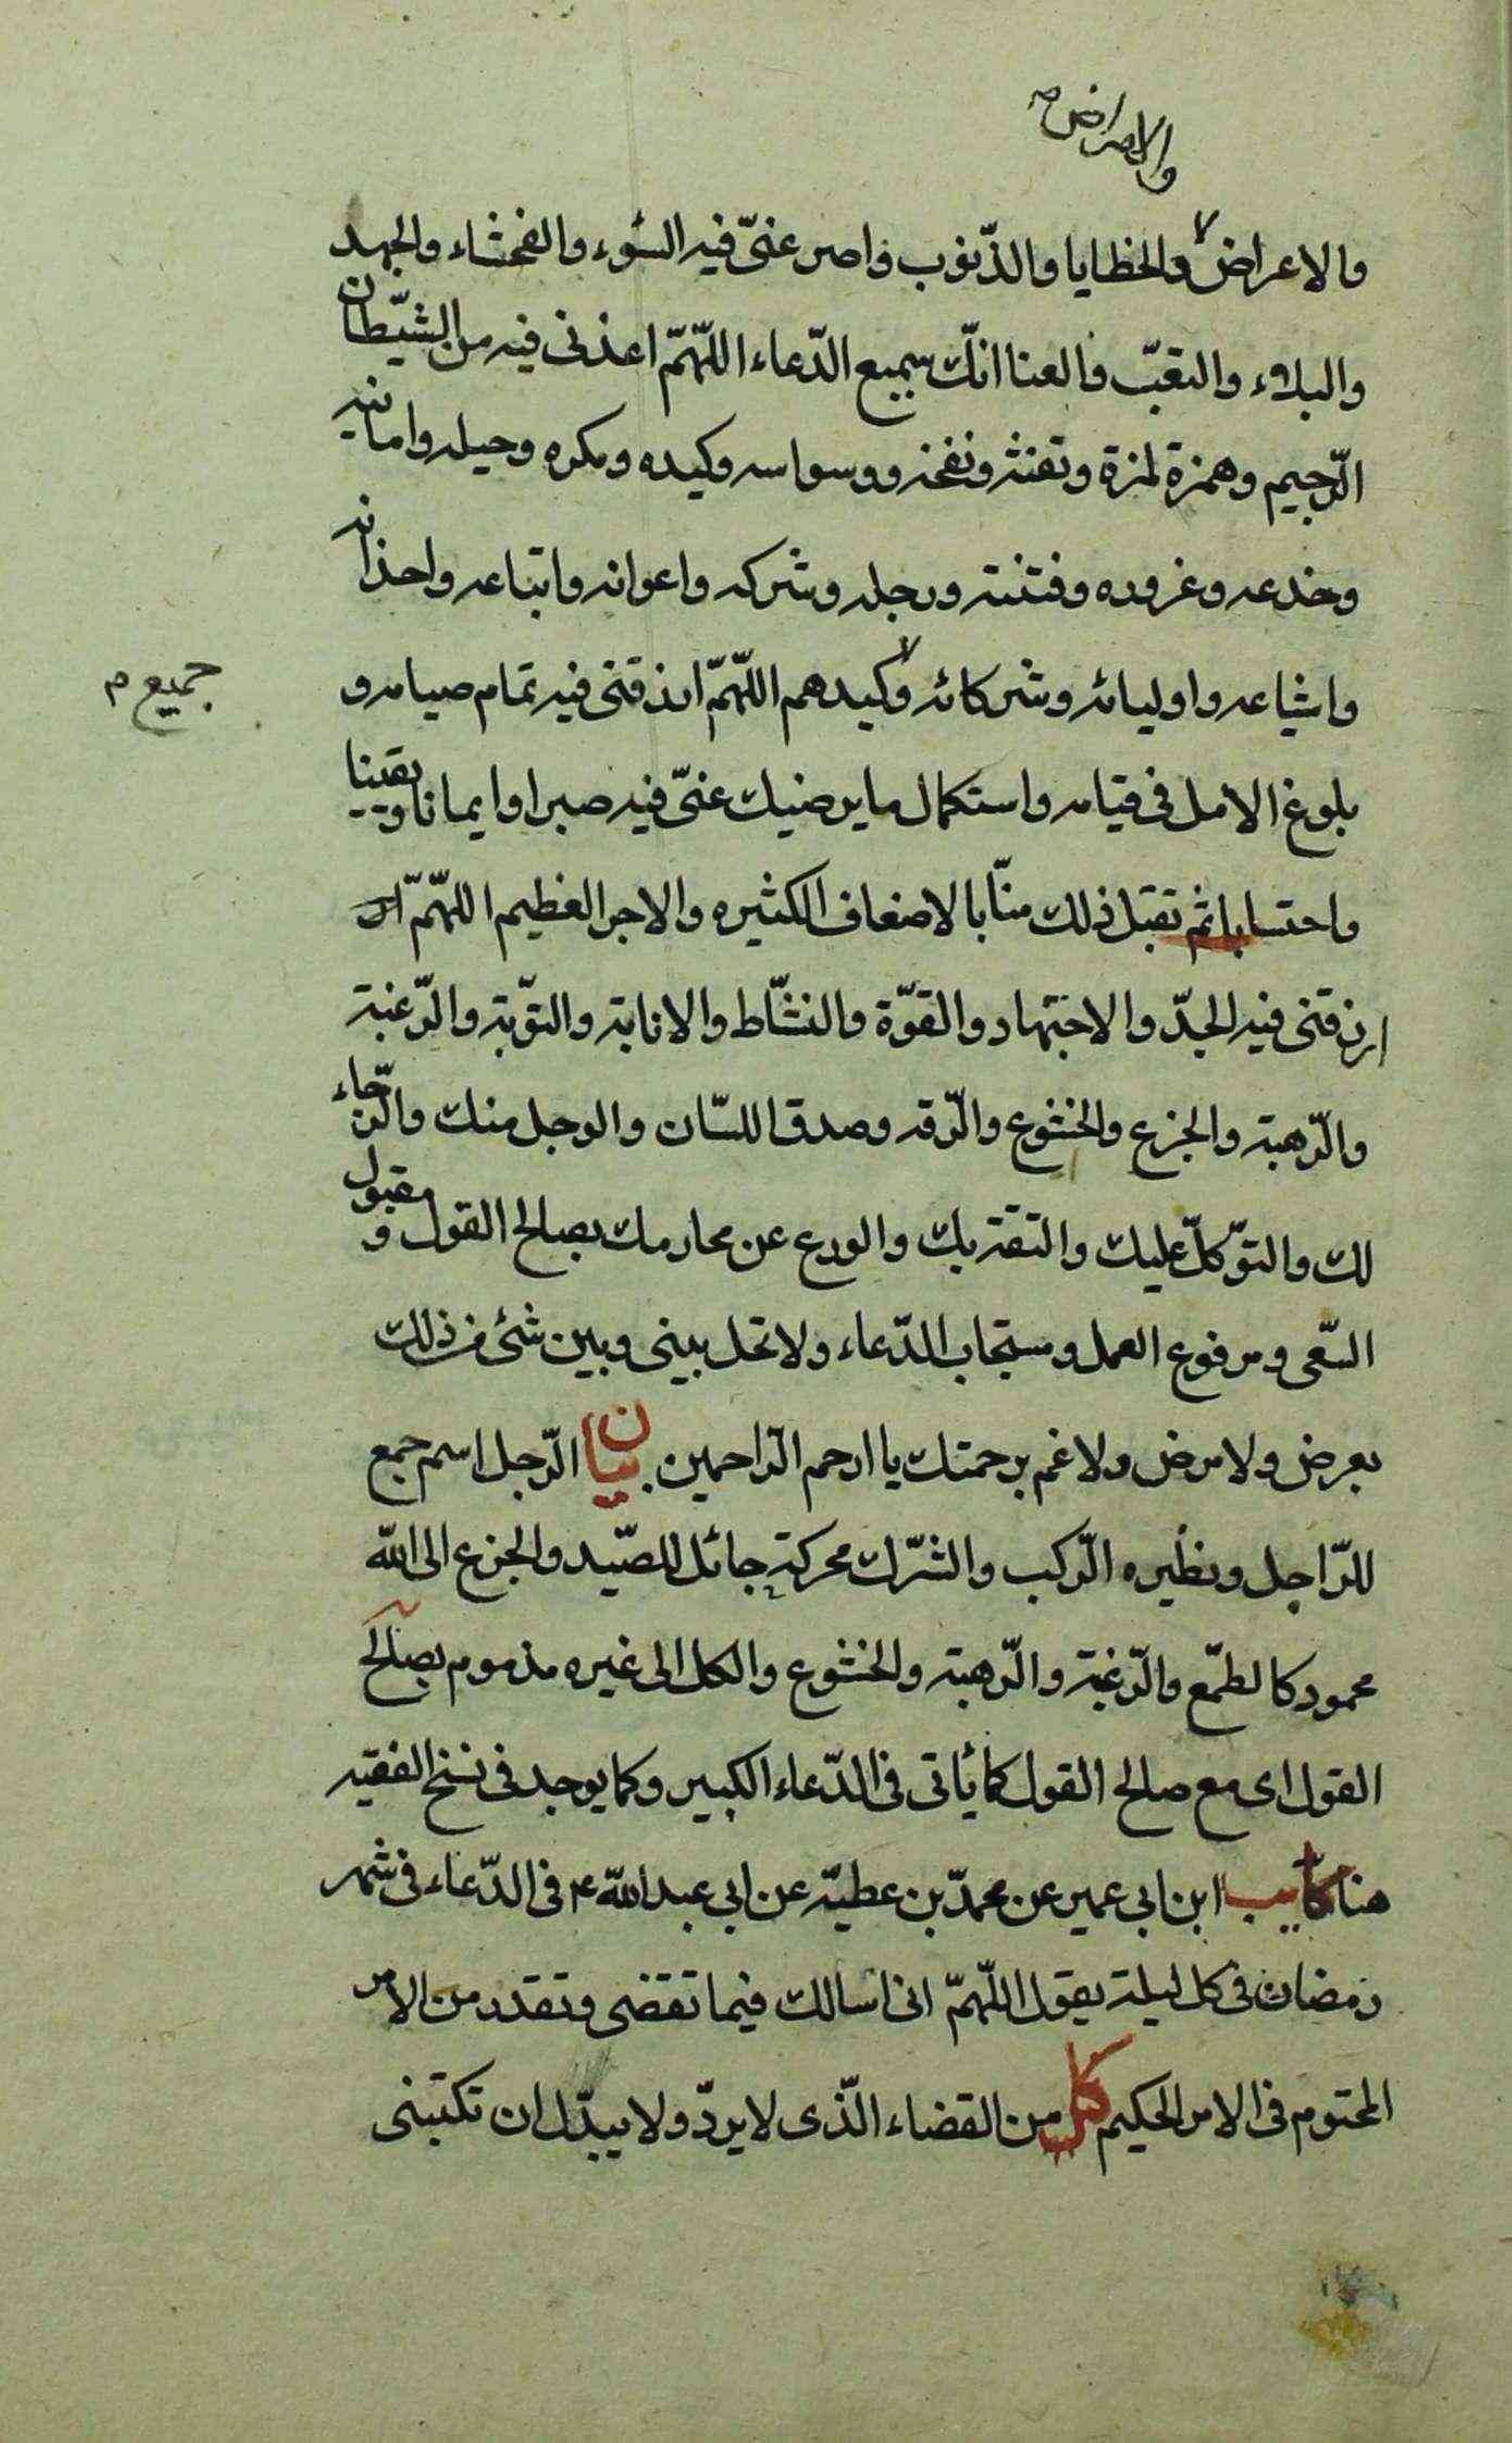 والامراض ص
والاعراض والخطايا والذّنوب واصر عنىّ فيه السّوء والفحشاء والجهد
والبلاء والتعّب والعنا انكّ سميع الدّعاء اللّهمّ اعذنى فيه من الشّيطان
الرّجيم وهمزة لمزة وتفنثه ونفخه ووسواسه وكيده ومكره وحيله وامانيه
وخدعه وغروره وفتنته ورجله وشركه واعوانه واتباعه واخذانه
واشياعه واوليائه وشركائه وكيدهم اللّهمّ ارذقنى فيه تمام صيامه و
جميع م
بلوغ الامل فى قيامه واستكمال ما يرضيك عنىّ فيه صبرا وايمانا ويقينا
واحتسابا ثم تقبل ذلك منّا بالاضعاف الكثيره والاجر العظيم اللّهمّ ار
ارزقنى فيه الجدّ والاجتهاد والقوّة والنشّاط والانابة والتوّبة والرّغبة
والرّهبة والجزع والخشوع والرّقه وصدق اللسّان والوجل منك والرّجاء
لك والتوّكلّ عليك والثقة بك والورع عن محارمك بصالح القول ومقبول
السّعى ومرفوع العمل ومستجاب الدّعاء ولا تحل بينى وبين شئ من ذلك
بعرض ولا مرض ولا غم برحمتك يا ارحم الرّاحمين بيان الرّجل اسم جمع
للرّاجل ونظيره الرّكب والشّرك محركة حبائل الصّيد والجزع الى اللّه
محمود كالطمّع والرّغبة والرّهبة والخشوع والكل الى غيره مذموم بصالح
القول اى مع صالح القول كما يأتى فى الدّعاء الكبير وكما يوجد فى نسخ الفقيه
هنا كا يب ابن ابي عمير عن محمدّ بن عطيّه عن ابي عبد اللّه ع فى الدّعاء فى شهر
رمضان فى كل ليلة يقول اللّهمّ انى اسالك فيما تقضى وتقدر من الامر
المحتوم فى الامر الحكيم من القضاء الّذى لا يردّ ولا يبدّل ان تكتبنى